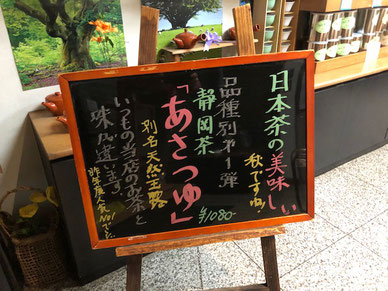 日本茶の美味しい
秋ですね!
品種別第1弾
静岡茶
「あさつゆ」
¥1080-
別名天然玉露
いつもの当店のお茶と
味が違います!
昨年度人気No1でした